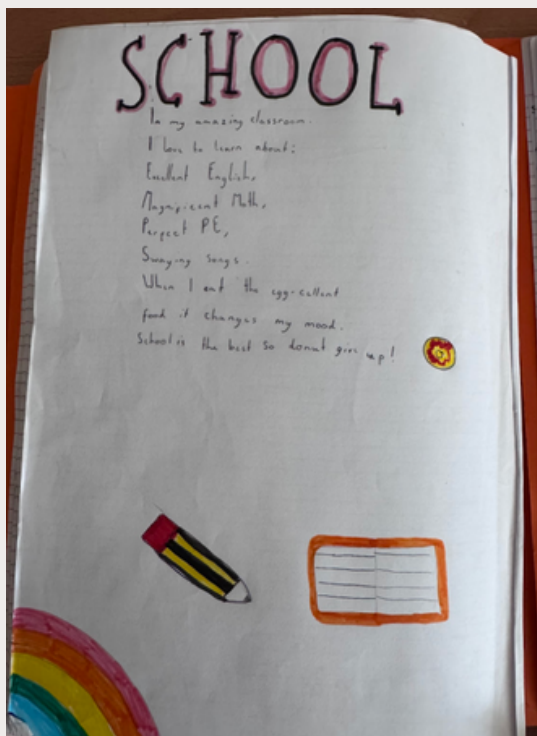 SCHOOL
In my amazing classroom.
I love to learn about:
Excellent English,
Magnificent Math,
Perfect PE,
Swaying songs.
When I eat the egg-cellent
food it changes my mood.
School is the best so donut give up!